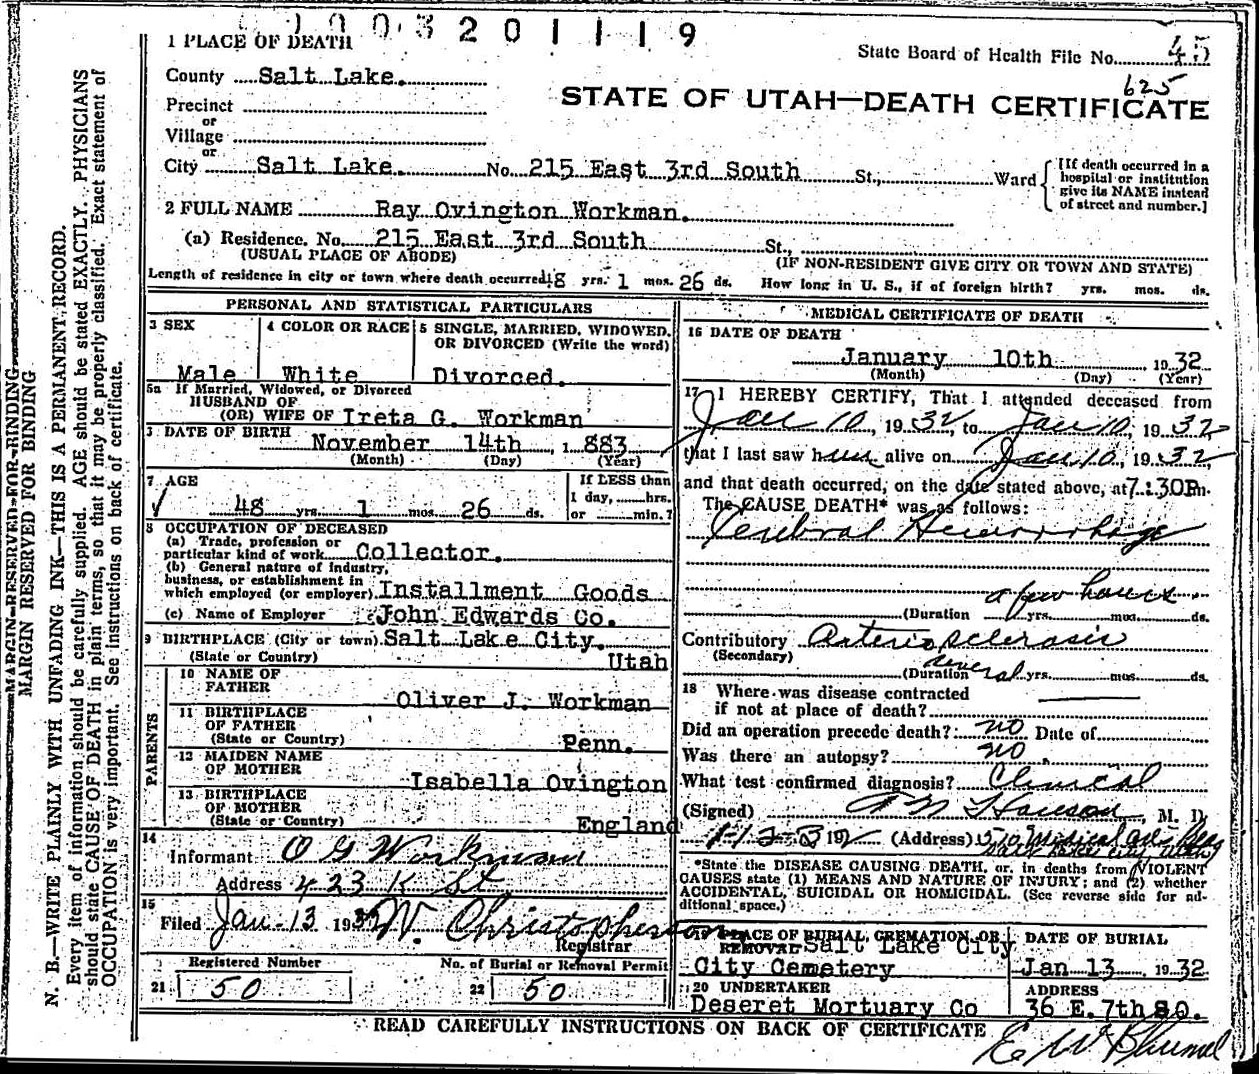 1003201119
1 PLACE OF DEATH
State Board of Health File No. 45
County Salt Lake.
625
STATE OF UTAH—DEATH CERTIFICATE
Precinct
or
Village
or
City Salt Lake. No. 215 East 3rd South St., Ward
[If death occurred in a hospital or institution give its NAME instead of street and number.]
2 FULL NAME Ray Ovington Workman.
(a) Residence. No. 215 East 3rd South St.,
(USUAL PLACE OF ABODE) (IF NON-RESIDENT GIVE CITY OR TOWN AND STATE)
Length of residence in city or town where death occurred 48 yrs. 1 mos. 26 ds. How long in U. S., if of foreign birth? yrs. mos. ds.
PERSONAL AND STATISTICAL PARTICULARS
3 SEX
Male
4 COLOR OR RACE
White
5 SINGLE, MARRIED, WIDOWED, OR DIVORCED (Write the word)
Divorced.
5a If Married, Widowed, or Divorced
HUSBAND OF
(OR) WIFE OF Ireta G. Workman
DATE OF BIRTH November 14th, 1883
(Month) (Day) (Year)
7 AGE
48 yrs. 1 mos. 26 ds.
If LESS than
1 day, hrs.
or min.?
8 OCCUPATION OF DECEASED
(a) Trade, profession or
particular kind of work Collector.
(b) General nature of industry,
business, or establishment in
which employed (or employer) Installment Goods
(c) Name of Employer John Edwards Co.
9 BIRTHPLACE (City or town) Salt Lake City.
(State or Country) Utah
PARENTS
10 NAME OF
FATHER Oliver J. Workman
11 BIRTHPLACE
OF FATHER
(State or Country) Penn.
12 MAIDEN NAME
OF MOTHER Isabella Ovington
13 BIRTHPLACE
OF MOTHER
(State or Country) England
14
Informant O G Workman
Address 423 K St
15
Filed Jan. 13 1932 W. Christopherson
Registrar
Registered Number No. of Burial or Removal Permit
21 50 22 50
MEDICAL CERTIFICATE OF DEATH
16 DATE OF DEATH
January 10th 1932
(Month) (Day) (Year)
17 I HEREBY CERTIFY, That I attended deceased from
Jan 10, 1932, to Jan 10, 1932
that I last saw him alive on Jan 10, 1932,
and that death occurred, on the date stated above, at 7:30P m.
The CAUSE DEATH* was as follows:
Cerebral Hemorrhage
a few hours
(Duration yrs. mos. ds.
Contributory Arteriosclerosis
(Secondary)
(Duration several yrs. mos. ds.
18 Where was disease contracted
if not at place of death?
Did an operation precede death? no Date of
Was there an autopsy? no.
What test confirmed diagnosis? Clinical
(Signed) Hanson, M. D.
1-12-32 192 (Address) 510 Medical Arts Bldg
Salt Lake City, Utah
*State the DISEASE CAUSING DEATH, or, in deaths from VIOLENT
CAUSES state (1) MEANS AND NATURE OF INJURY; and (2) whether
ACCIDENTAL, SUICIDAL OR HOMICIDAL. (See reverse side for ad-
ditional space.)
19 PLACE OF BURIAL, CREMATION, OR
REMOVAL Salt Lake City
City Cemetery
DATE OF BURIAL
Jan 13, 1932
20 UNDERTAKER
Deseret Mortuary Co
ADDRESS
36 E. 7th SO.
READ CAREFULLY INSTRUCTIONS ON BACK OF CERTIFICATE
MARGIN RESERVED FOR BINDING
MARGIN RESERVED FOR BINDING
N. B.—WRITE PLAINLY WITH UNFADING INK—THIS IS A PERMANENT RECORD.
Every item of information should be carefully supplied. AGE should be stated EXACTLY. PHYSICIANS
should state CAUSE OF DEATH in plain terms, so that it may be properly classified. Exact statement of
OCCUPATION is very important. See instructions on back of certificate.